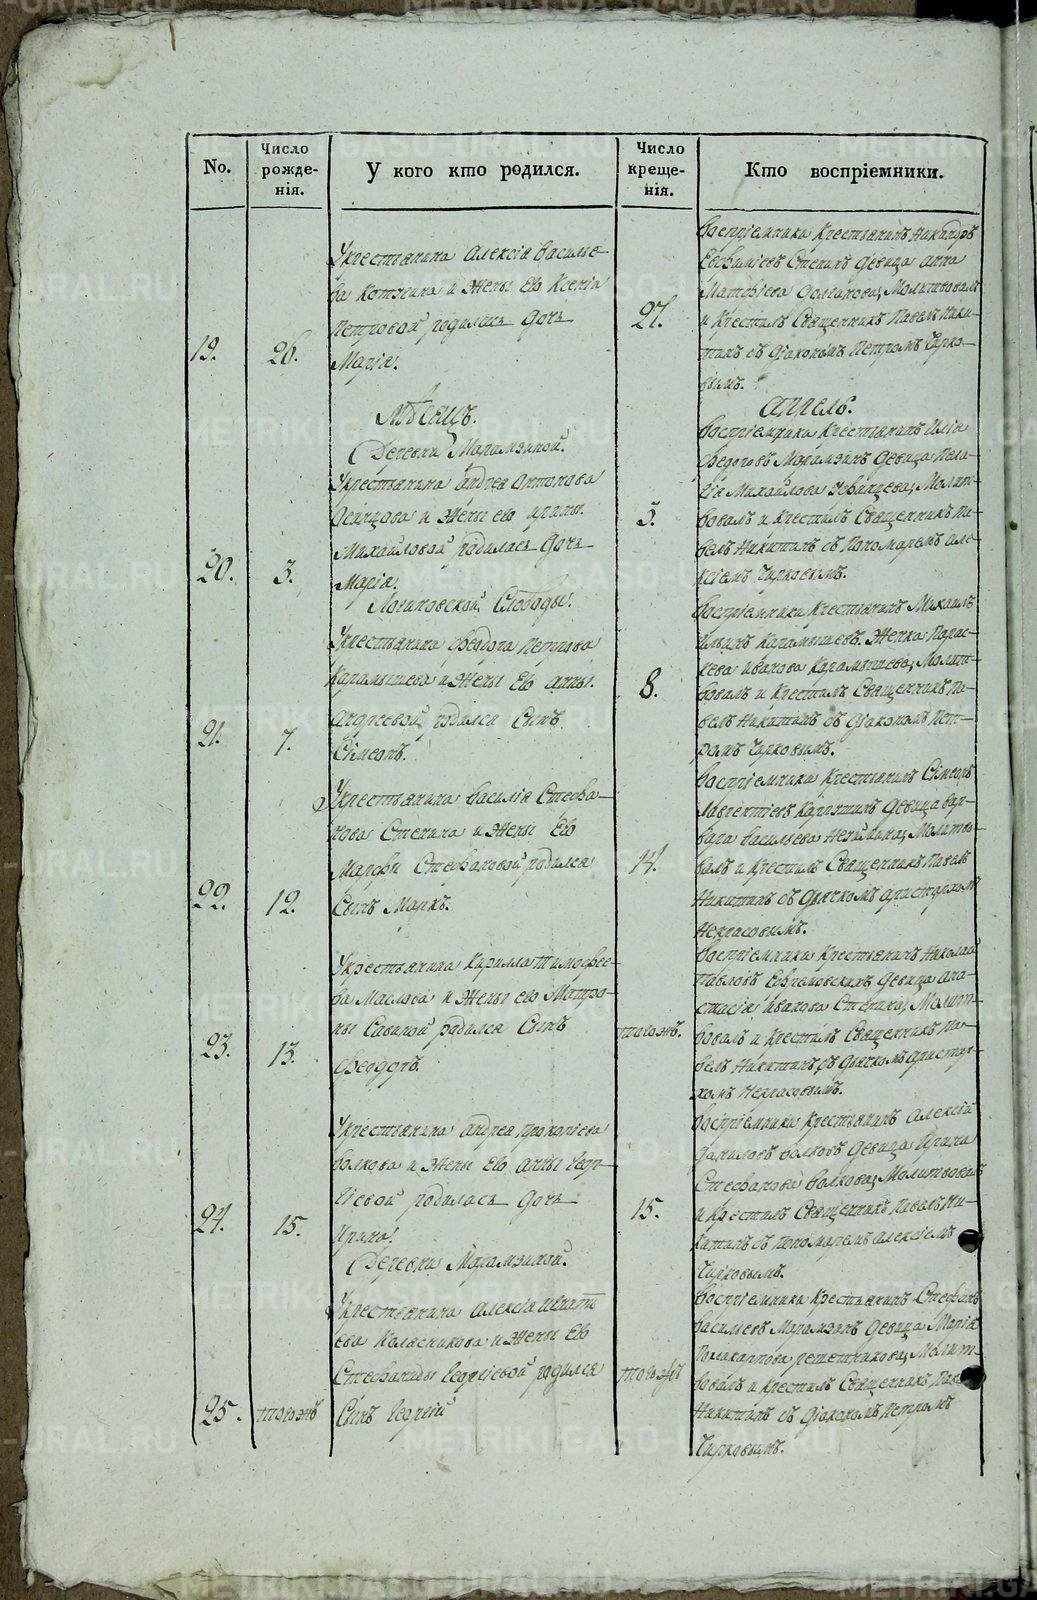 No.
Число рожде-нія.
У кого кто родился.
Число креще-нія.
Кто воспріемники.
19.
26.
Укрестьянина Алексія Василье-
ва Котугина и Жены Ево Ксеніи
Петровой родилась Дочь
Марія.
27.
Воспріемники Крестьянинъ Никандръ
Евфиміевъ Степинъ Девица Анна
Матфіева Молитвовалъ
и Крестилъ Священникъ Павелъ Ники-
тинъ съ Діакономъ Петромъ Чирко-
вымъ.
Мѣсяцъ.
Апрель.
Деревни Марамзиной.
20.
3.
Укрестьянина Андрея Антонова
Осинцова и Жены ево Ирины
Михайловой родилась Дочь
Марія.
5.
Воспріемники Крестьянинъ Илія
Федоровъ Марамзинъ Девица Пела-
гія Михайлова Молит-
вовалъ и Крестилъ Священникъ Па-
велъ Никитинъ съ Пономаремъ Але-
ксіемъ Чирковымъ.
Логиновской Слободы.
21.
7.
Укрестьянина Феодора Петрова
Карамышева и Жены Ево Анны
Андреевой родился Сынъ
Сімеонъ.
8.
Воспріемники Крестьянинъ Михаилъ
Ильинъ Карамышевъ. Женка Парас-
кева Иванова Карамышева, Молит-
вовалъ и Крестилъ Священникъ Па-
велъ Никитинъ съ Діакономъ Пет-
ромъ Чирковымъ.
22.
12.
Укрестьянина Василія Стефа-
нова Степина и Жены Ево
Марфы Стефановой родился
Сынъ Маркъ.
14.
Воспріемники Крестьянинъ Сімеонъ
Лаврентіевъ Девица Вар-
вара Васильева Молитво-
валъ и Крестилъ Священникъ Павелъ
Никитинъ съ Дьячкомъ Аристархомъ
Некрасовымъ.
23.
13.
Укрестьянина Кирилла Тимофее-
ва Маслова и Жены ево Матро-
ны Савиной родился Сынъ
Феодоръ.
тогожъ.
Воспріемники Крестьянинъ Николай
Павловъ Девица Ана-
стасія Иванова Степина, Молит-
вовалъ и Крестилъ Священникъ Па-
велъ Никитинъ съ Дьячкомъ Аристар-
хомъ Некрасовымъ.
24.
15.
Укрестьянина Андрея Прокопіева
Волкова и Жены Ево Анны Геор-
гіевой родилась Дочь
Ирина.
15.
Воспріемники Крестьянинъ Алексій
Даниловъ Волковъ Девица Ирина
Стефанова Волкова, Молитвовалъ
и Крестилъ Священникъ Павелъ Ни-
китинъ съ Пономаремъ Алексіемъ
Чирковымъ.
Деревни Марамзиной.
25.
тогожъ
Укрестьянина Алексія Игнать
ева Колясникова и Жены Ево
Стефаниды Георгіевой родился
Сынъ Георгій
тогожъ
Воспріемники Крестьянинъ Стефанъ
Васильевъ Марамзинъ Девица Марія
Поликарпова Решетникова, Молит-
вовалъ и Крестилъ Священникъ Павелъ
Никитинъ съ Діакономъ Петромъ
Чирковымъ.